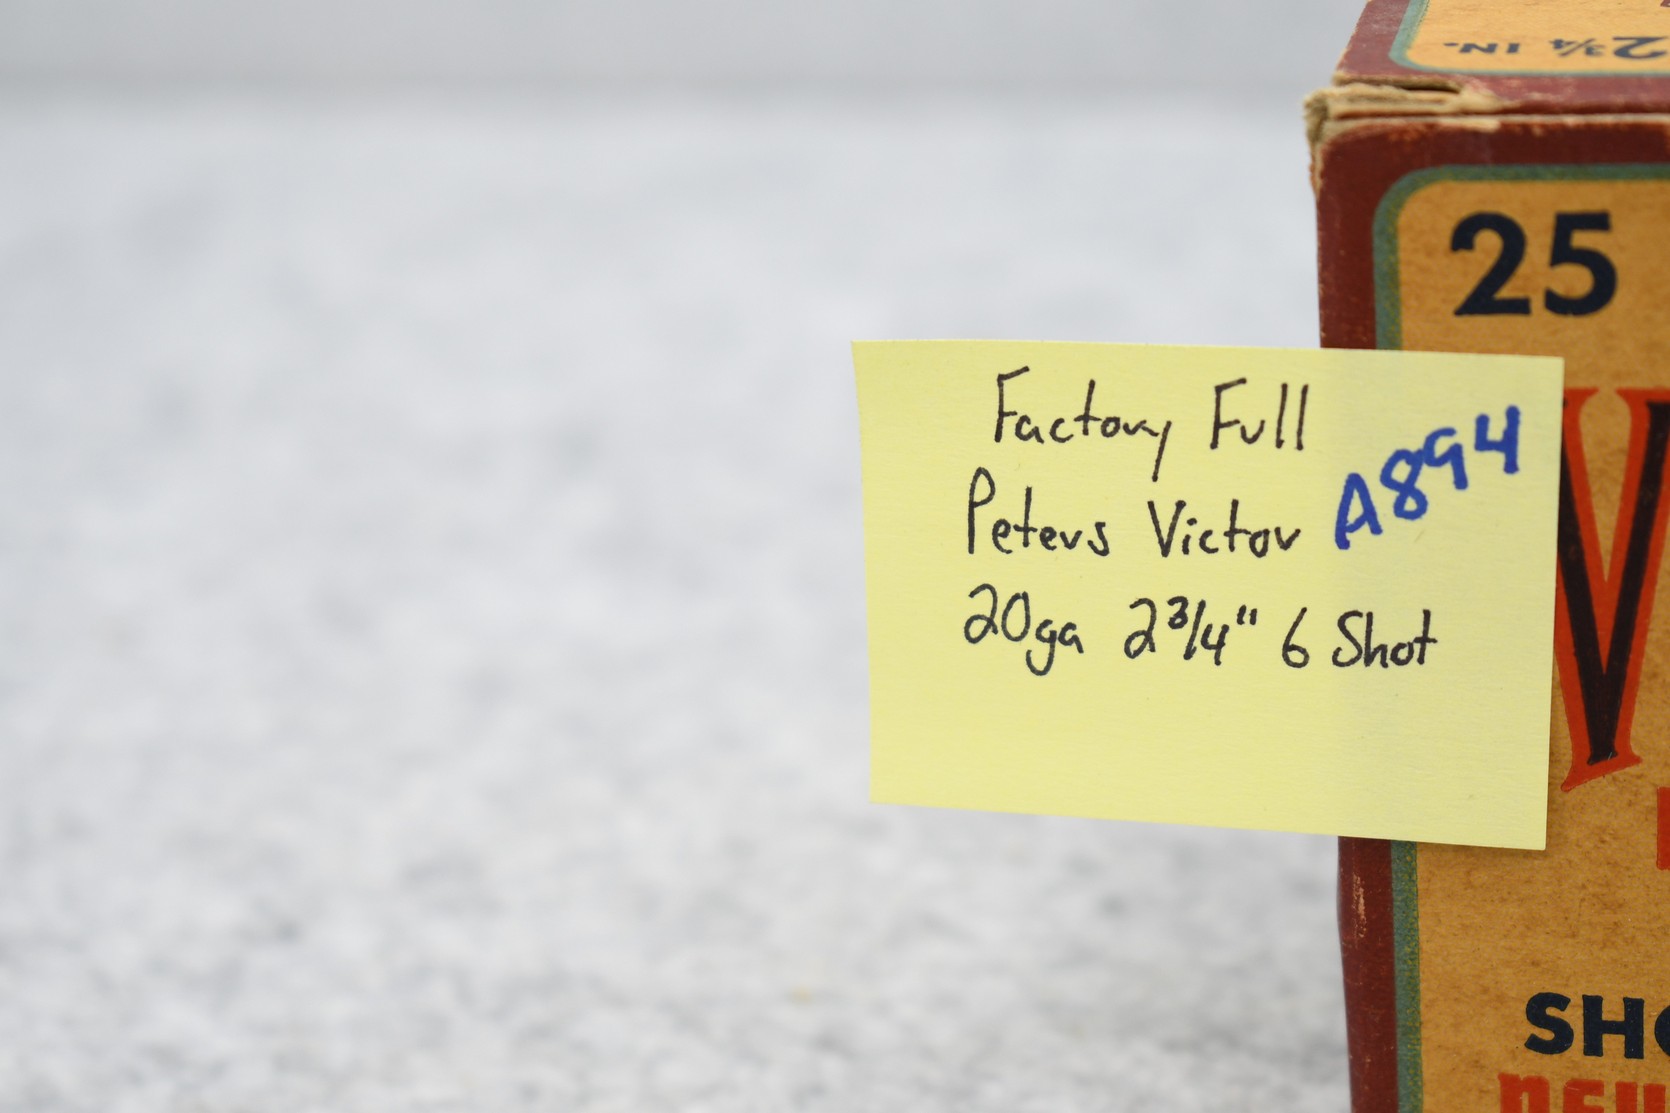 2 3/4 IN.
25
Factory Full
Peters Victor A894
20ga 2 3/4" 6 Shot
V